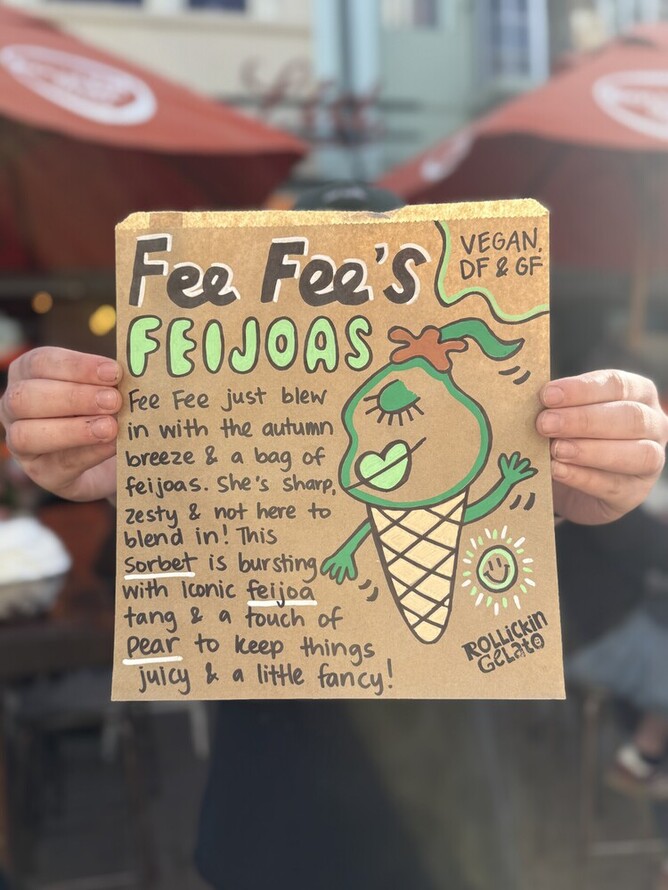 Fee Fee's
VEGAN,
DF & GF
FEIJOAS
Fee Fee just blew
in with the autumn
breeze & a bag of
feijoas. She's sharp,
zesty & not here to
blend in! This
Sorbet is bursting
with iconic feijoa
tang & a touch of
pear to keep things
juicy & a little fancy!
ROLLiCKiN
GeLato